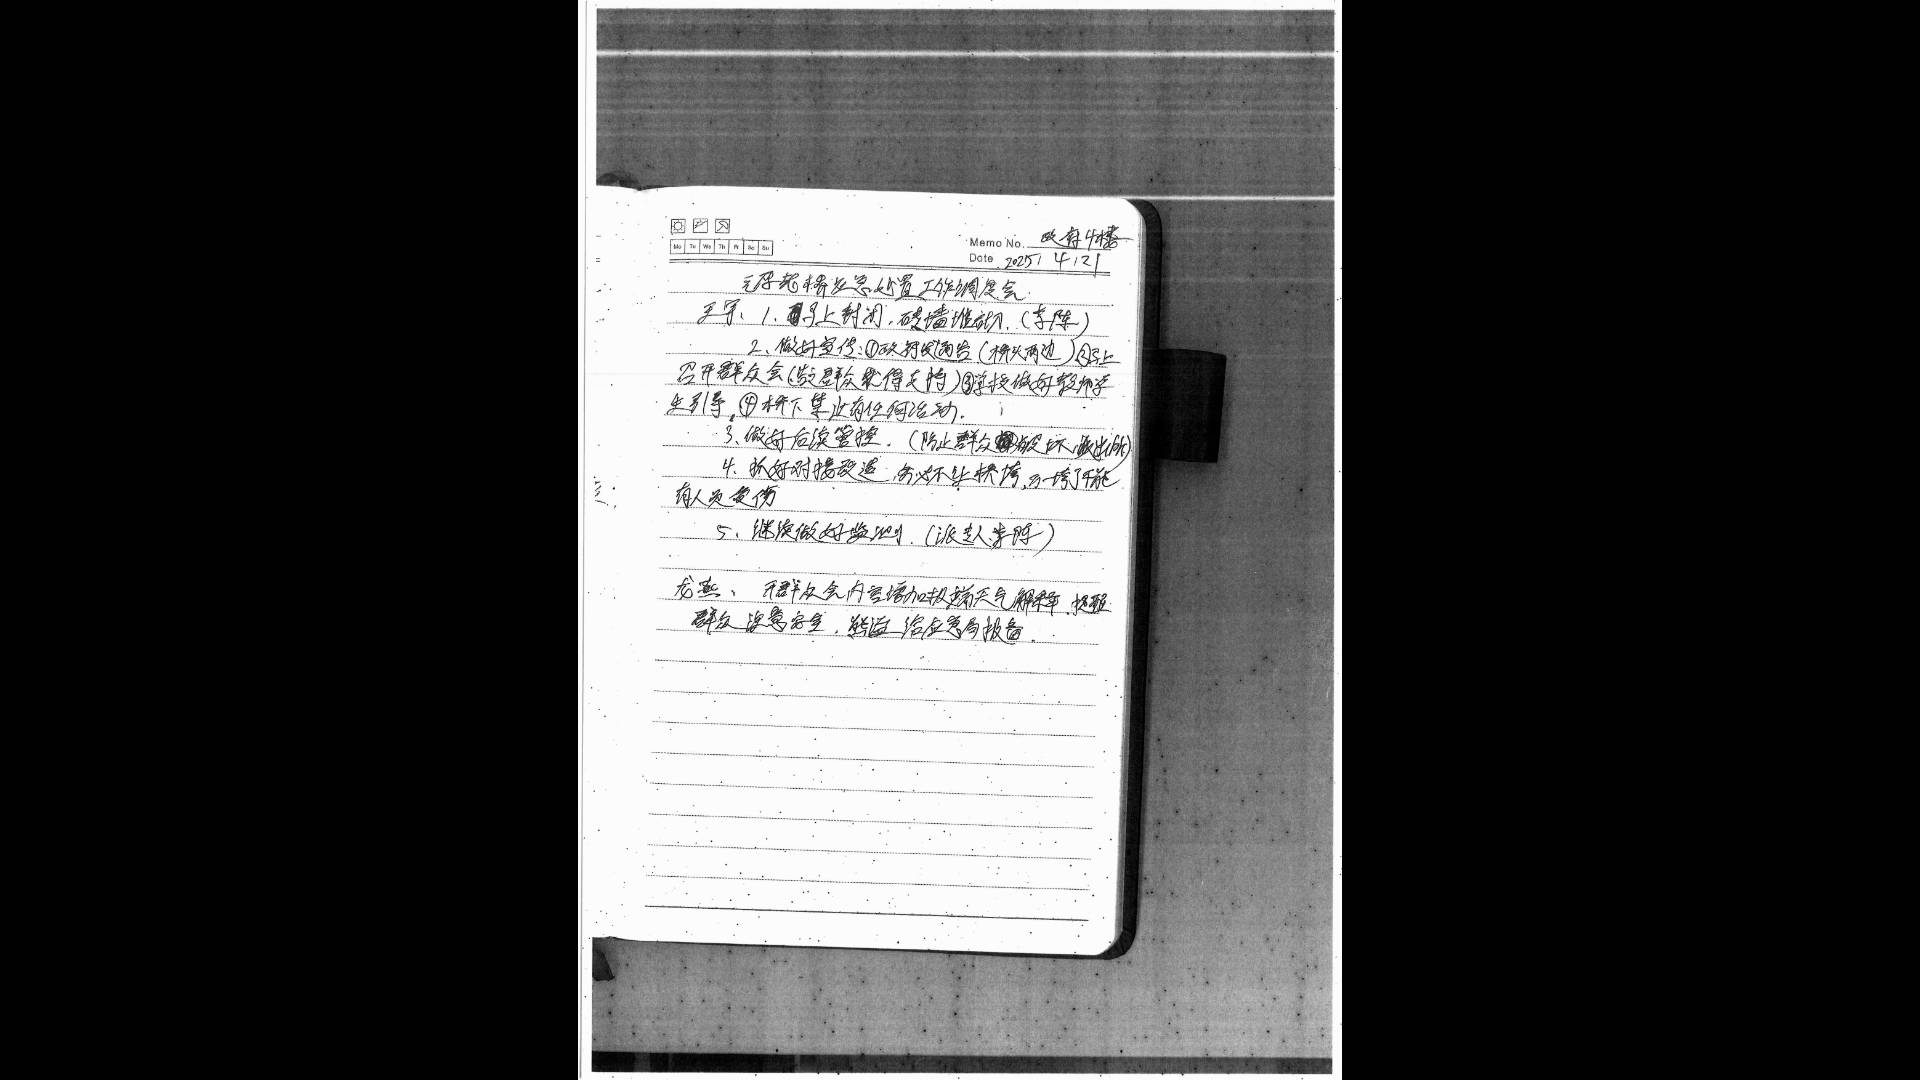 Mo Tu We Th Fr Sa Su
Memo No. 政府4楼
Date 2025 / 4 / 21
桥应急处置工作调度会
王军、1、马上封闭，砖墙堆砌.（李陈）
2、做好宣传：①政府发通告（桥头两边）②马上
召开群众会（教群众获得支持）③学校做好教师学
生引导，④桥下禁止有任何活动.
3、做好后续管控.（防止群众破坏，派出所）
4、抓好对接改造，务必不让桥垮，万一垮了不能
有人员受伤
5、继续做好监测.（派专人 李陈）
龙燕、开群众会内容增加极端天气解释，提醒
群众注意安全， 给应急局报备.